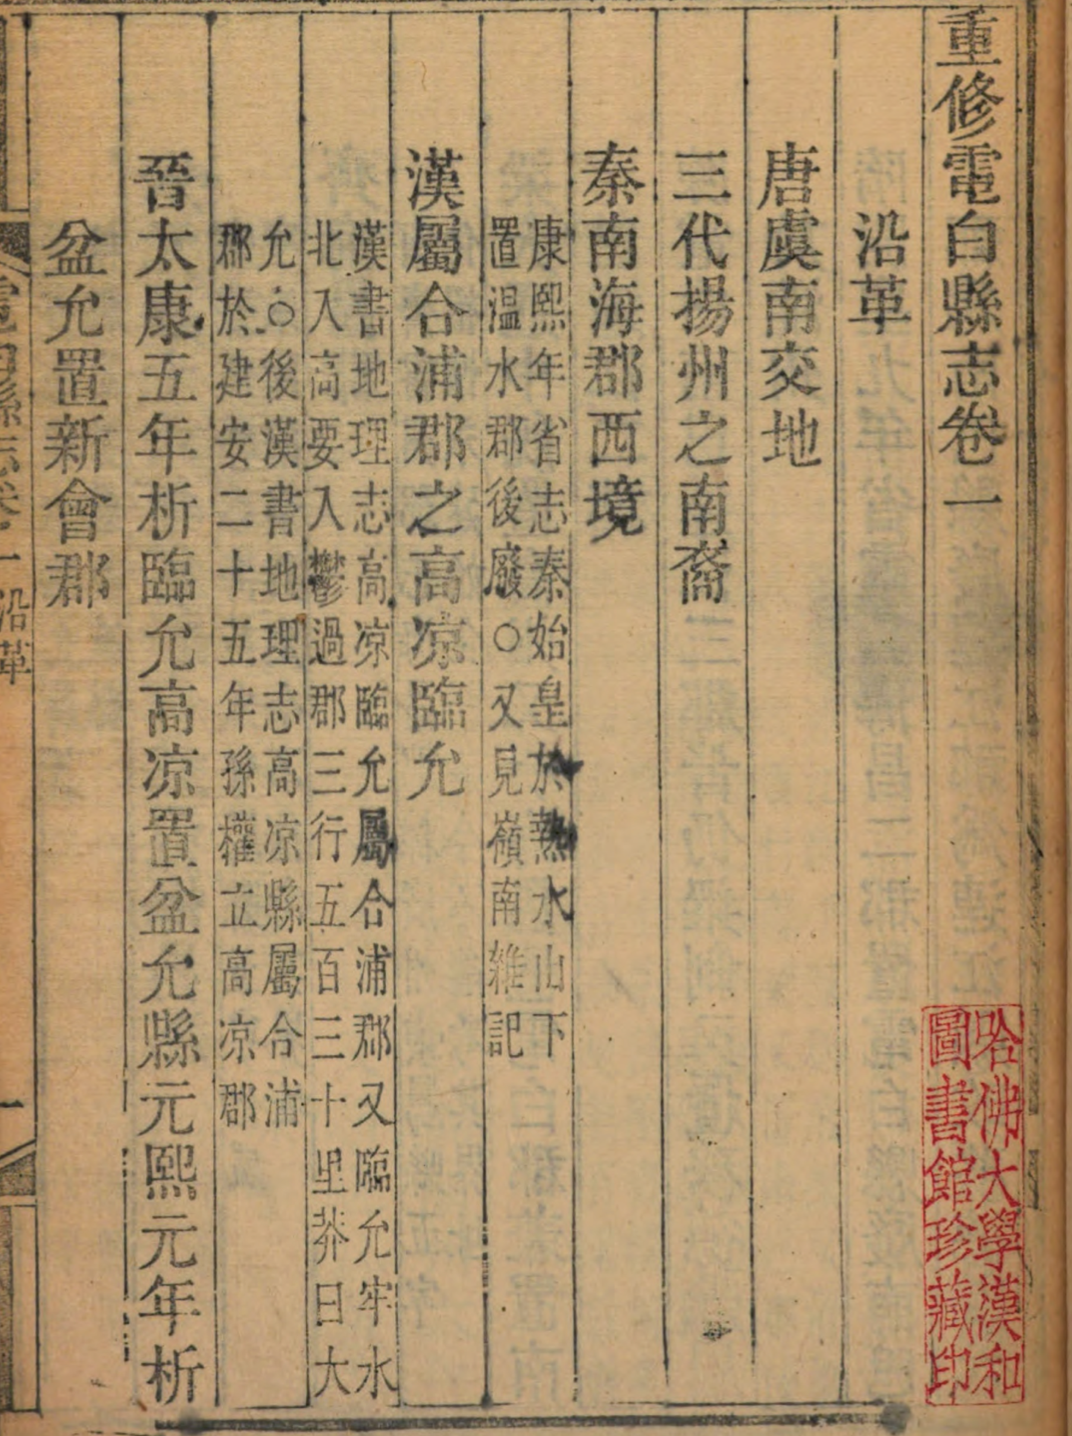 重修電白縣志卷一
沿革
唐虞南交地
三代揚州之南裔
秦南海郡西境
康熙年省志秦始皇於熱水山下
置温水郡後廢○又見嶺南雜記
漢屬合浦郡之高凉臨允
漢書地理志高凉臨允屬合浦郡又臨允牢水
北入高要入鬱過郡三行五百三十里莽曰大
允○後漢書地理志高凉縣屬合浦
郡於建安二十五年孫權立高凉郡
晉太康五年析臨允高凉置盆允縣元熙元年析
盆允置新會郡
電白縣志卷一 沿革
一
哈佛大學漢和
圖書館珍藏印